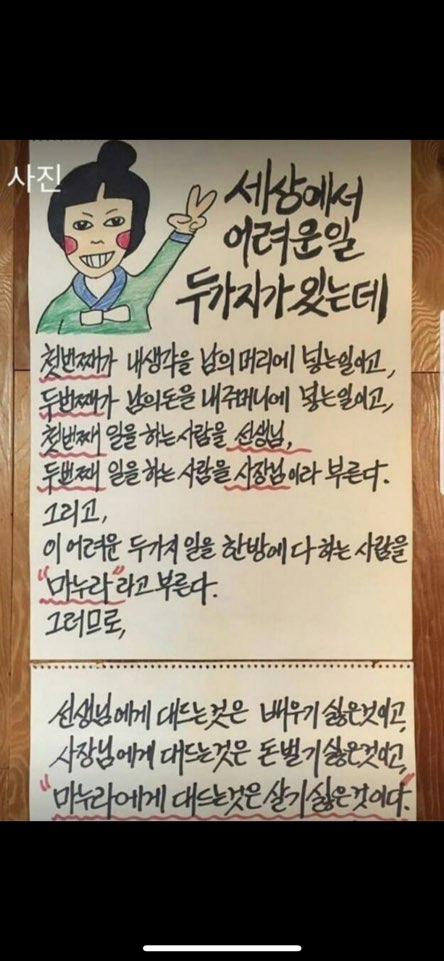 사진
세상에서
어려운일
두가지가 있는데
첫번째가 내생각을 남의 머리에 넣는일이고,
두번째가 남의돈을 내주머니에 넣는일이고,
첫번째 일을 하는사람을 선생님,
두번째 일을 하는 사람을 사장님이라 부른다.
그리고,
이 어려운 두가지 일을 한방에 다 하는 사람을
"마누라"라고 부른다.
그러므로,
선생님에게 대드는것은 배우기 싫은것이고,
사장님에게 대드는것은 돈벌기 싫은것이고,
"마누라에게 대드는것은 살기 싫은것이다."